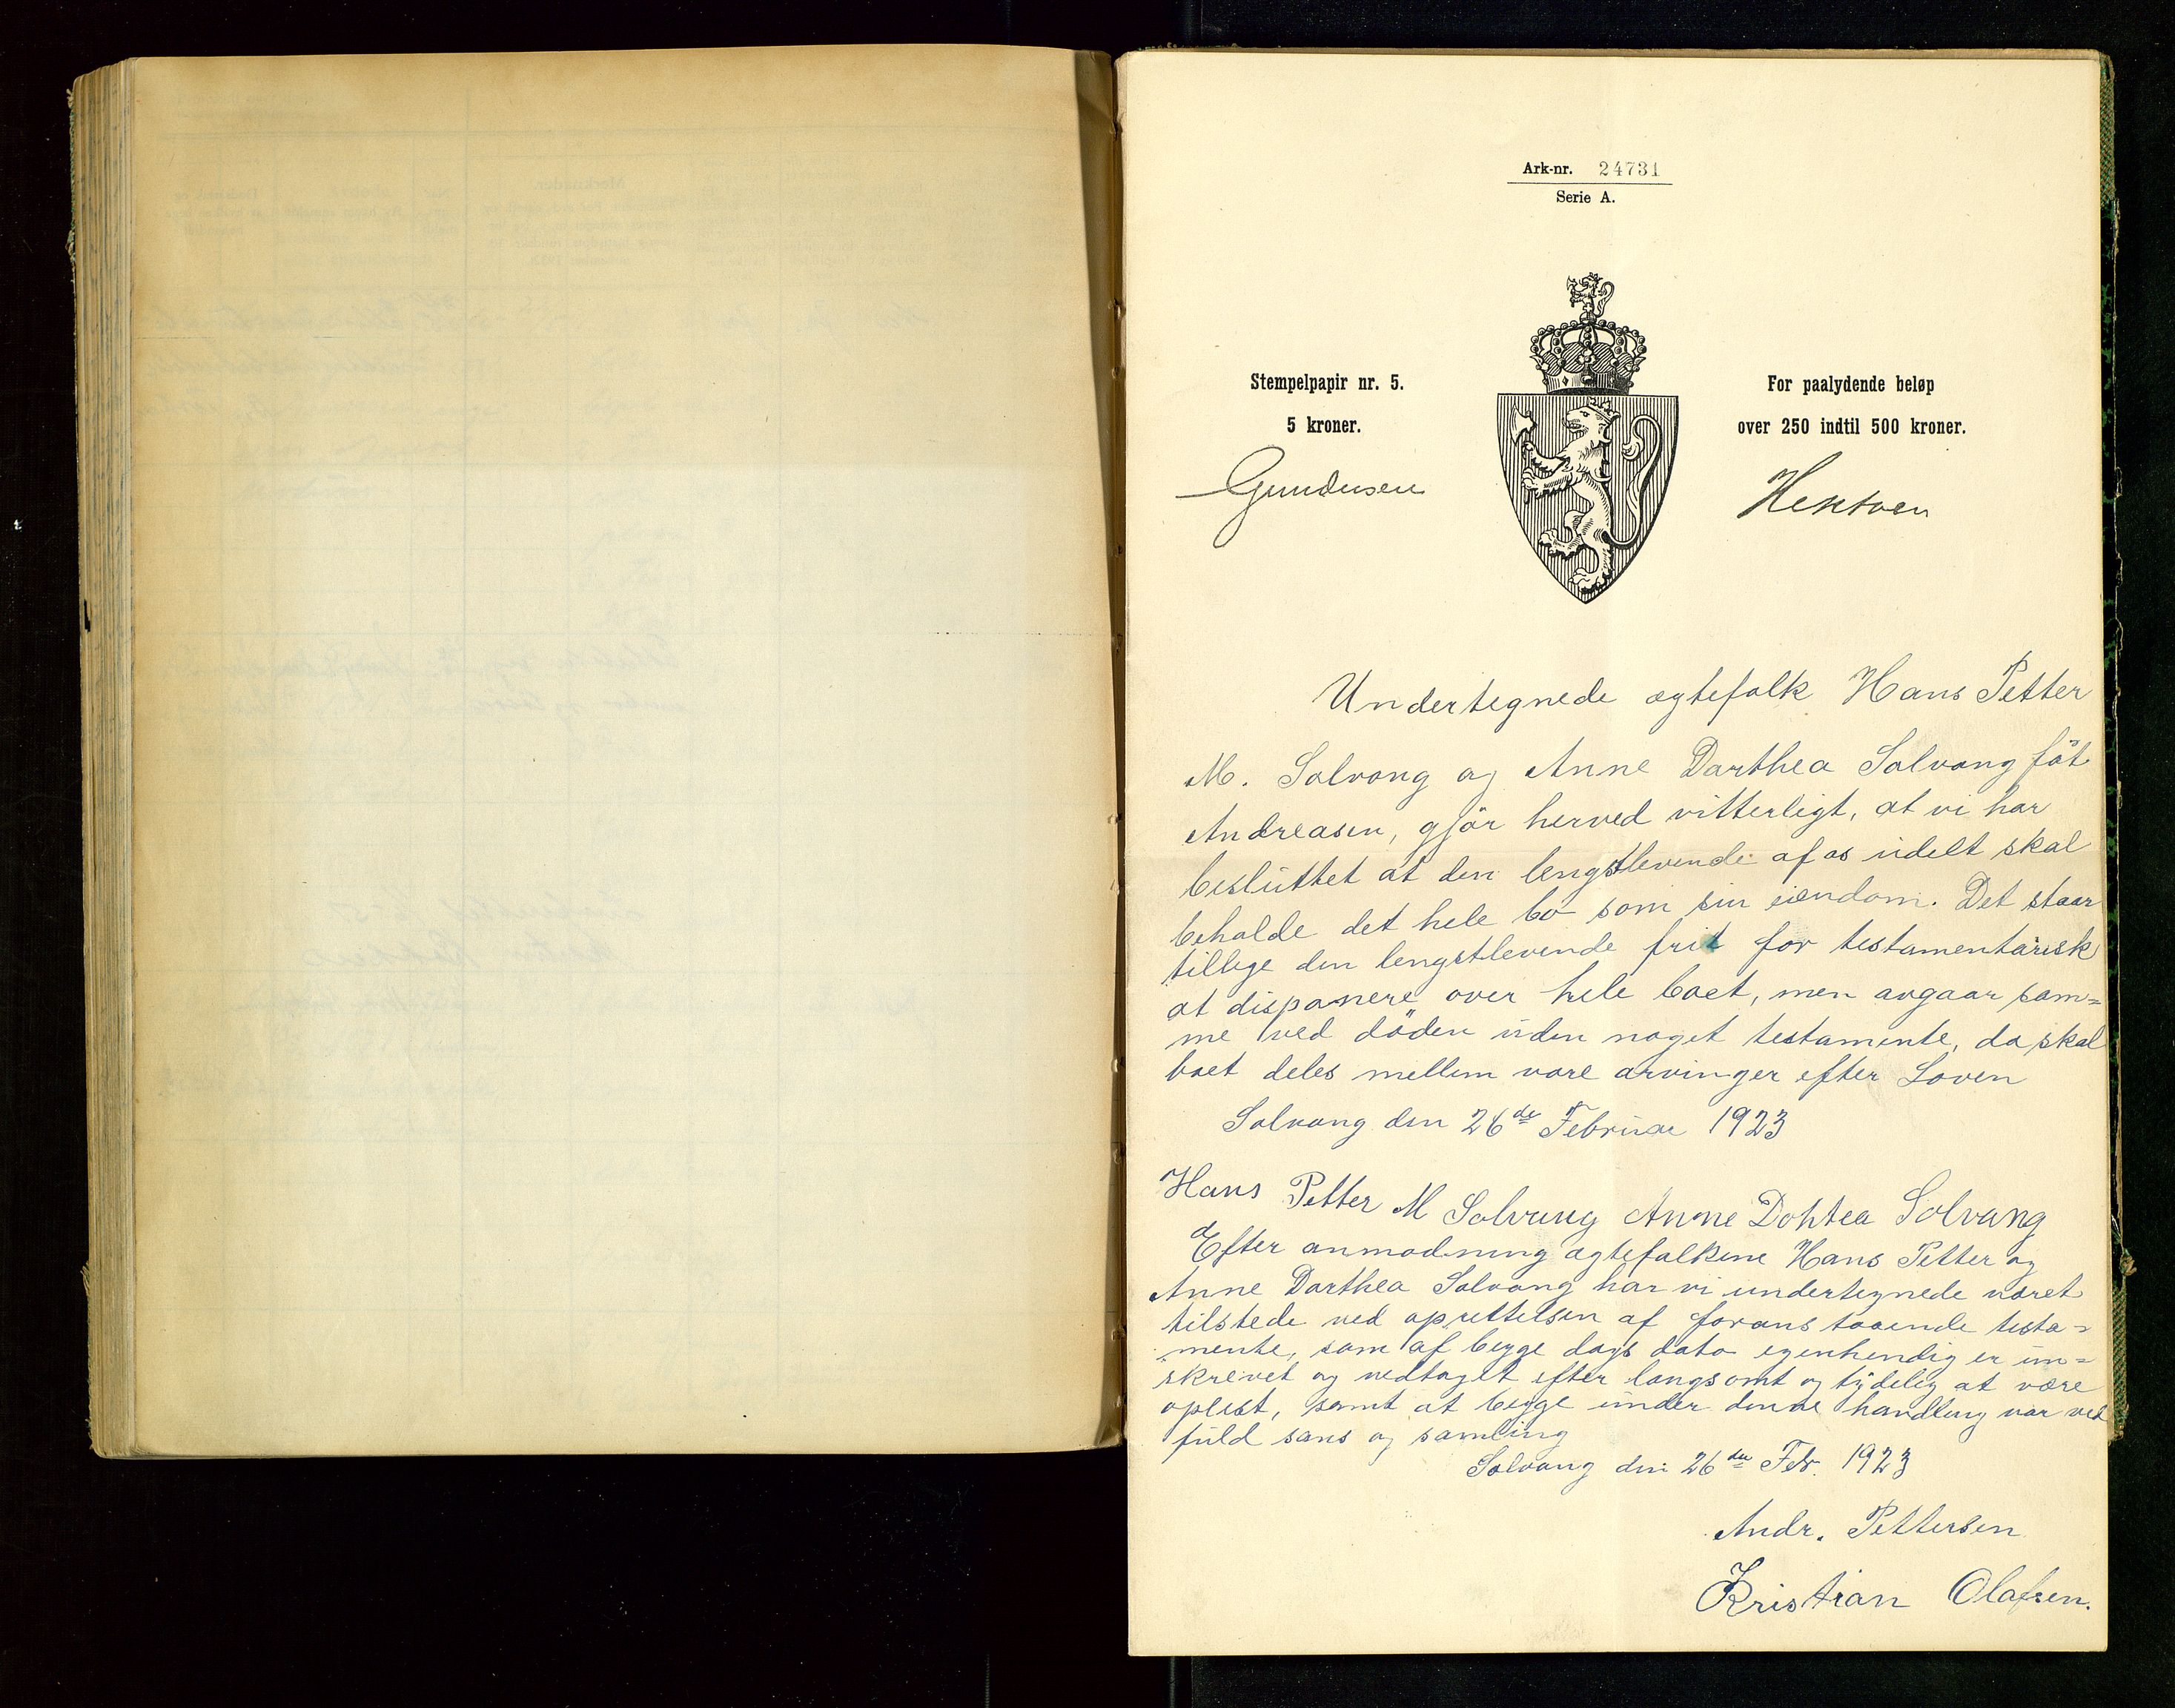 Ark-nr. 24731
Serie A.
Stempelpapir nr. 5.
5 kroner.
For paalydende beløp
over 250 indtil 500 kroner.
Gundersen
Undertegnede egtefolk Hans Petter
M. Solvang og Anne Dorthea Solvang föt
Andreasen, gjör herved vitterligt, at vi har
besluttet at den lengstlevende af os udelt skal
beholde det hele bo som sin eiendom. Det staar
tillige den lengstlevende frit for testamentarisk
at disponere over hele boet, men avgaar sam=
me ved döden uden noget testamente, da skal
boet deles mellem vore arvinger efter Loven
Solvang den 26de Februar 1923
Hans Petter M Solvang Anne Dohtea Solvang
Efter anmodning egtefolkene Hans Petter og
Anne Dorthea Solvang har vi undertegnede været
tilstede ved oprettelsen af foranstaaende testa=
mente, som af begge dags dato egenhendig er un=
skrevet og vedtaget efter langsomt og tydelig at være
oplest, samt at begge under denne handling var ved
fuld sans og samling
Solvang den 26de Feb. 1923
Andr. Pettersen
Kristian Olafsen.